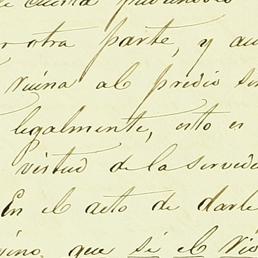 cuenta
r otra parte, y au
ruina al predio si
legalmente, esto es
virtud de la servid
En el acto de darle
vino, que si el Vis